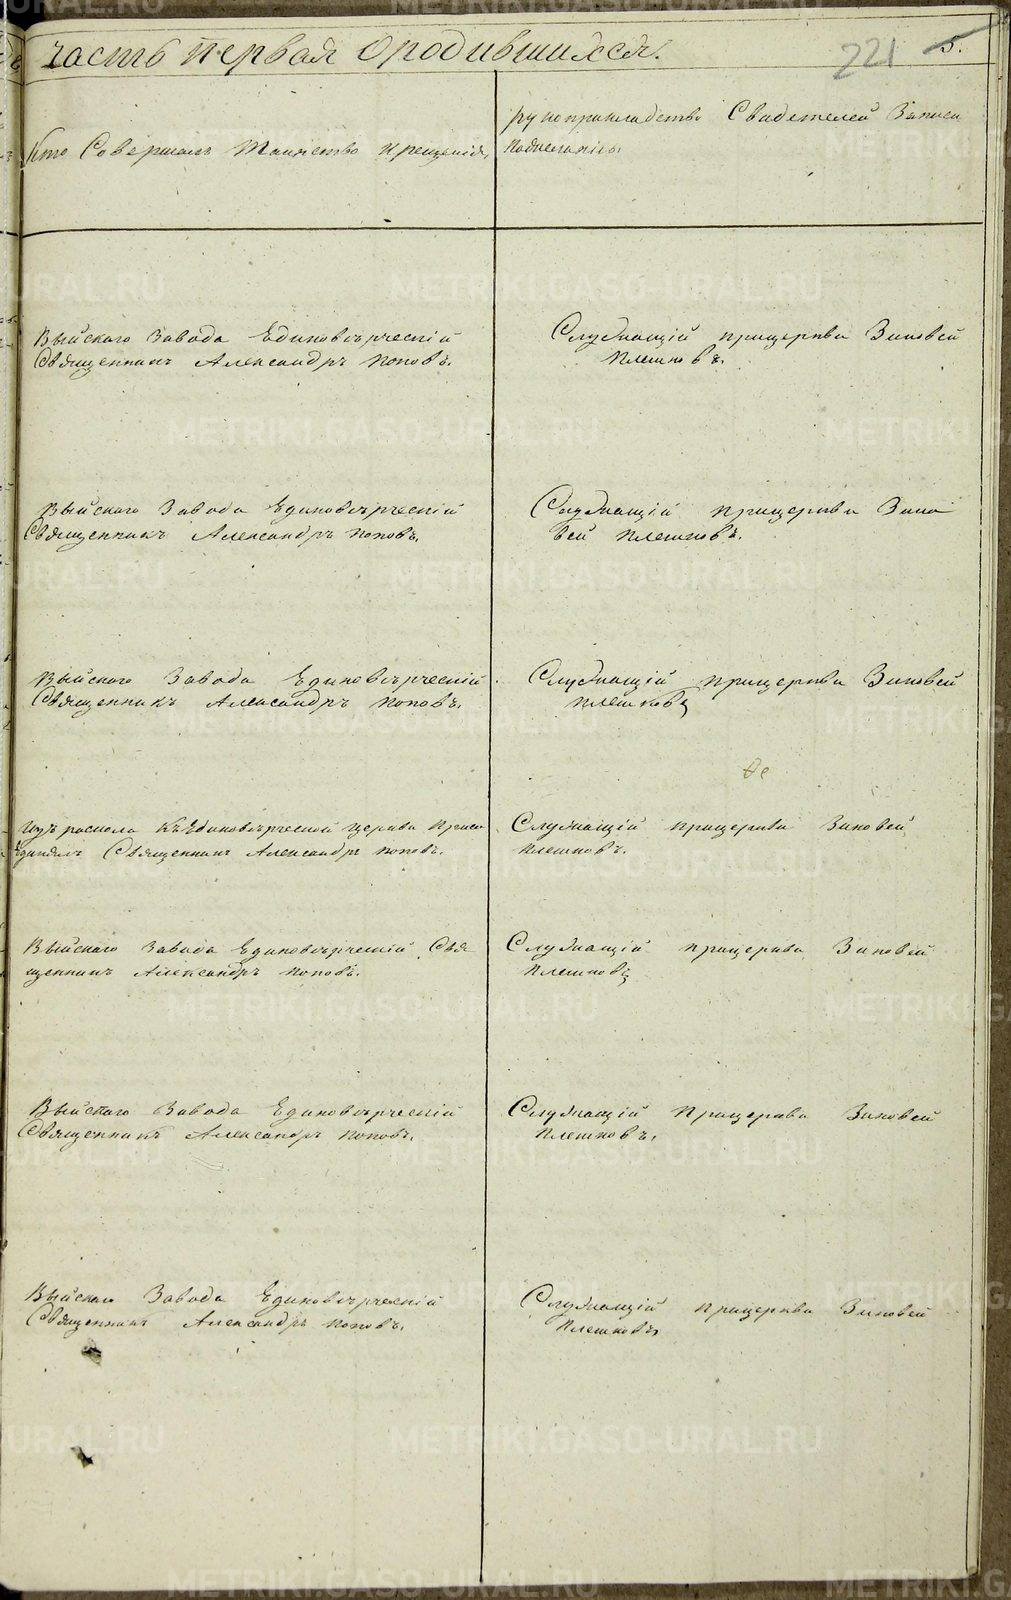 часть первая о родившихся.
221 5.
Кто Совершалъ Таинство Крещенія,
рукоприкладство Свидетелей Записи
по
Выйскаго Завода Единоверческій
Священникъ Александръ Поповъ.
Служащій прицеркви Зиновей
Плешковъ.
Выйскаго Завода Единоверческій
Священникъ Александръ Поповъ.
Служащій прицеркви Зино
вей Плешковъ.
Выйскаго Завода Единоверческій
Священникъ Александръ Поповъ.
Служащій прицеркви Зиновей
Плешковъ
Изъ раскола къ Единоверческой Церкви Присо
единялъ Священникъ Александръ Поповъ.
Служащій прицеркви Зиновей
Плешковъ.
Выйскаго Завода Единоверческій Свя
щенникъ Александръ Поповъ.
Служащій прицеркви Зиновей
Плешковъ
Выйскаго Завода Единоверческій
Священникъ Александръ Поповъ.
Служащій Прицеркви Зиновей
Плешковъ.
Выйскаго Завода Единоверческій
Священникъ Александръ Поповъ.
Служащій прицеркви Зиновей
Плешковъ
METRIKI.GASO-URAL.RU